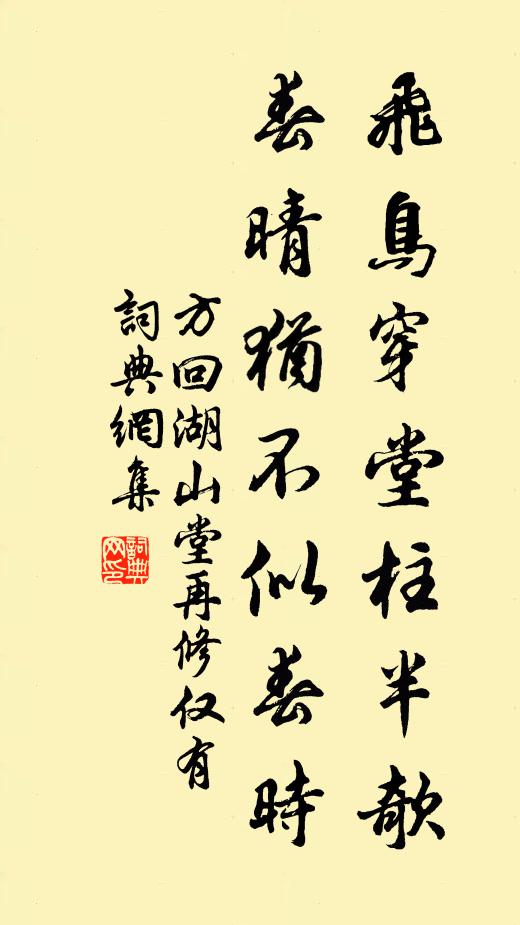 飛鳥穿堂柱半欹
春晴猶不似春時
方回湖山堂再修仅有
詞典網集
詞典网印